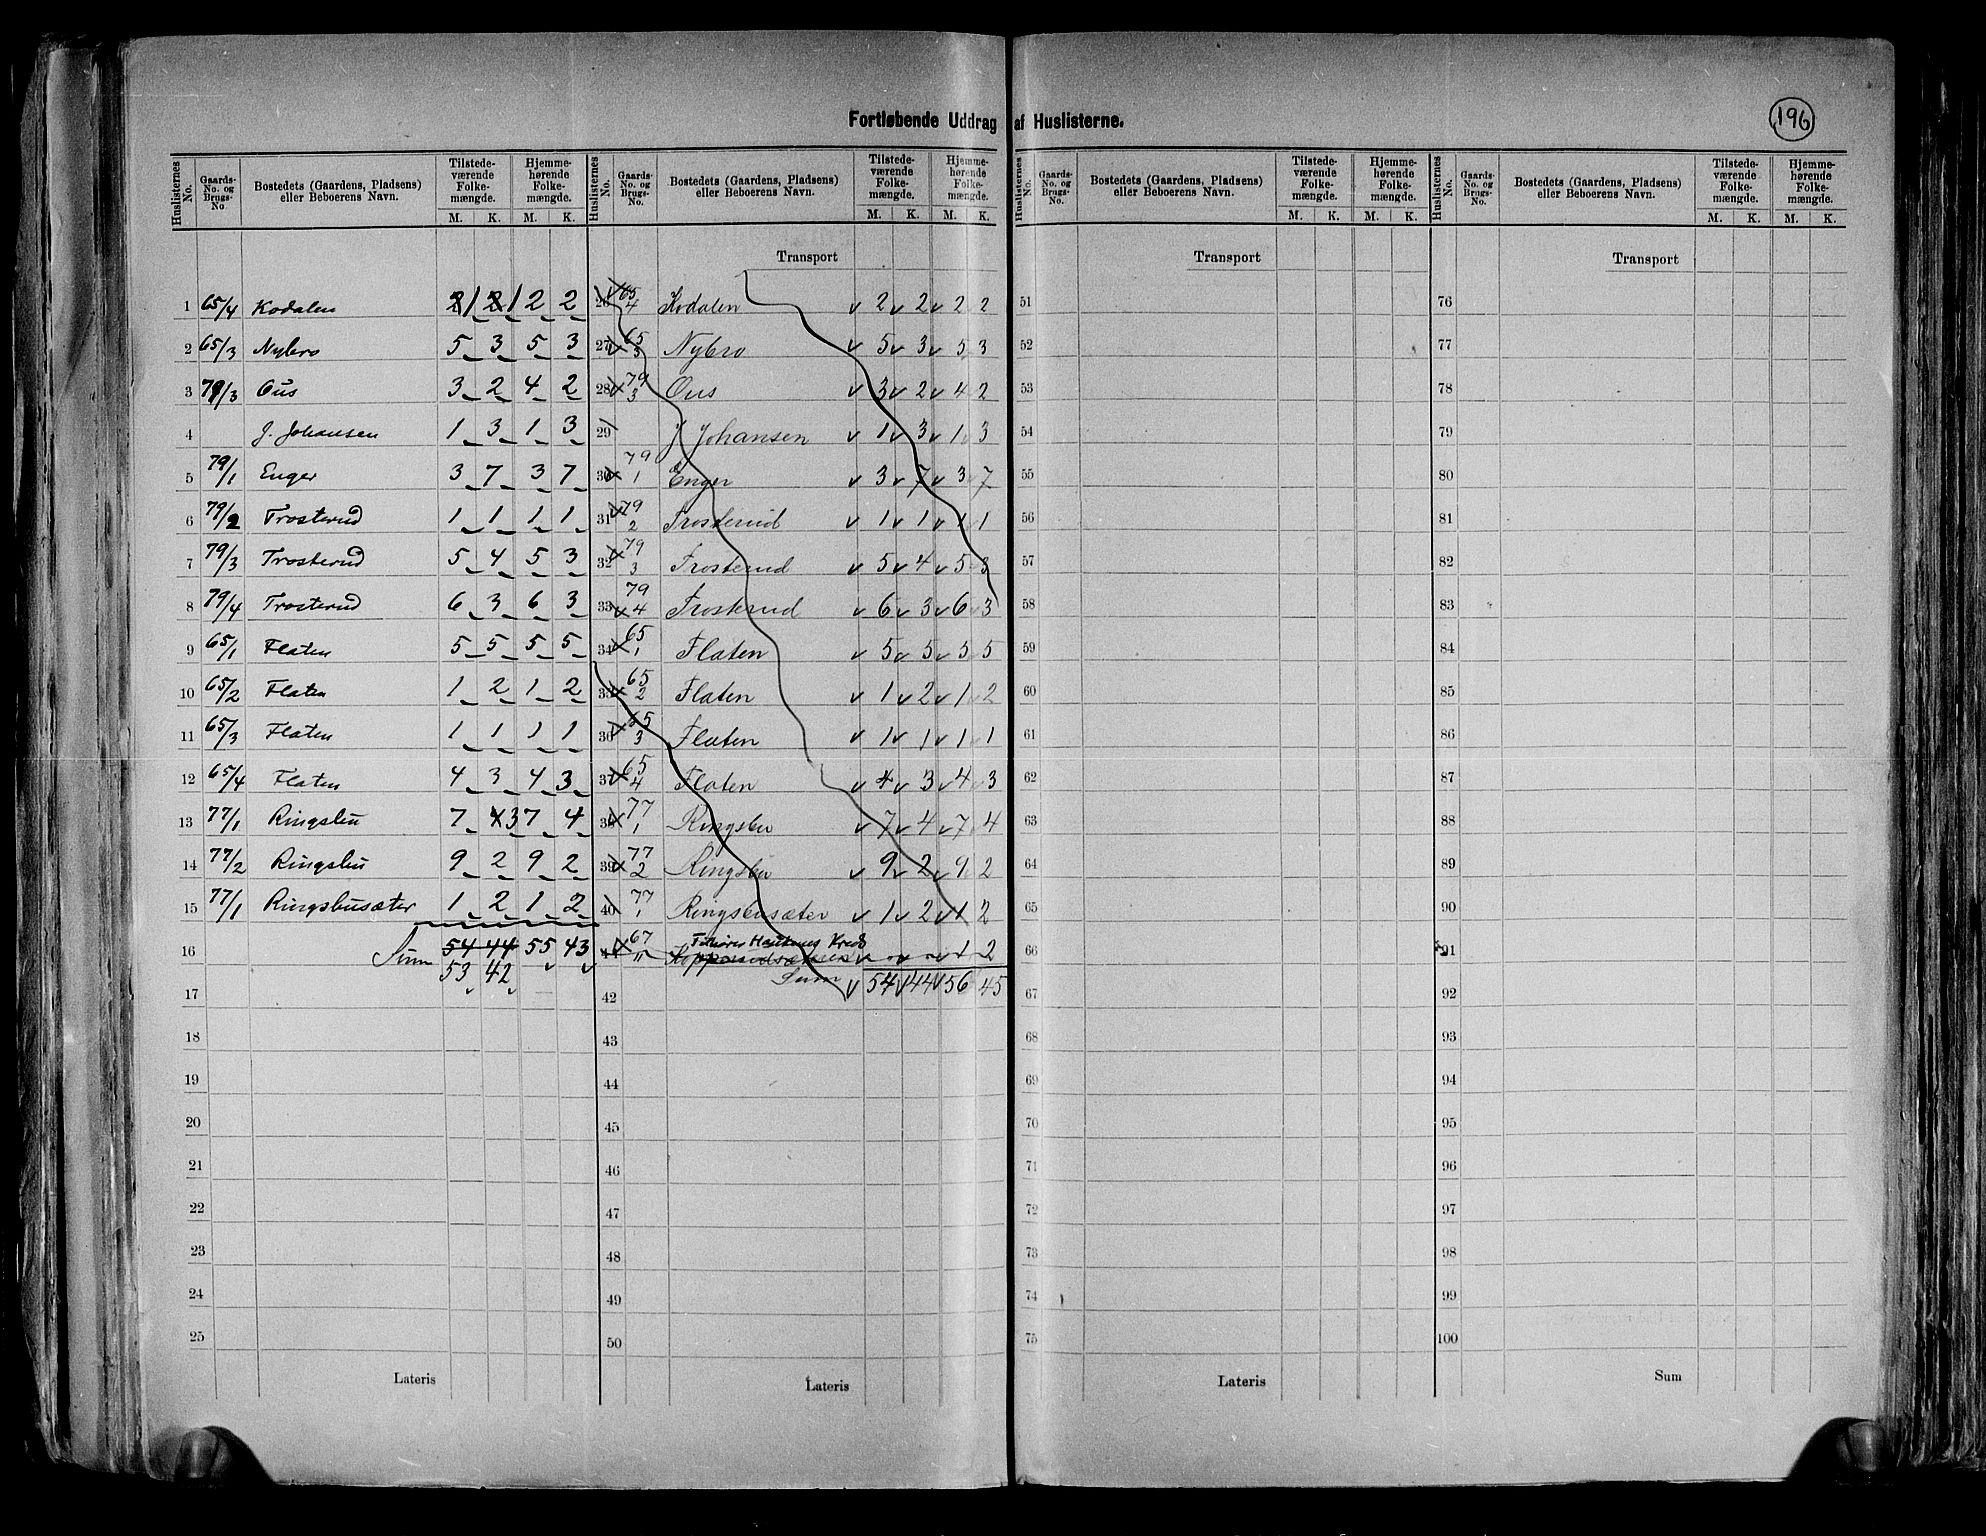 Fortløbende Uddrag af Huslisterne.
196
Huslisternes No. | Gaards-No. og Brugs-No. | Bostedets (Gaardens, Pladsens) eller Beboerens Navn. | Tilstedeværende Folkemængde. M. K. | Hjemmehørende Folkemængde. M. K.
1 65/4 Kodalen 2 1 2 1 2 2
2 65/3 Nybro 5 3 5 3
3 79/3 Ous 3 2 4 2
4 J. Johansen 1 3 1 3
5 79/1 Enger 3 7 3 7
6 79/2 Trosterud 1 1 1 1
7 79/3 Trosterud 5 4 5 3
8 79/4 Trosterud 6 3 6 3
9 65/1 Flaten 5 5 5 5
10 65/2 Flaten 1 2 1 2
11 65/3 Flaten 1 1 1 1
12 65/4 Flaten 4 3 4 3
13 77/1 Ringsbu 7 4 3 7 4
14 77/2 Ringsbu 9 2 9 2
15 77/1 Ringsbusæter 1 2 1 2
16 Sum 54 44 55 43
53 42
17
18
19
20
21
22
23
24
25
Lateris
Huslisternes No. | Gaards-No. og Brugs-No. | Bostedets (Gaardens, Pladsens) eller Beboerens Navn. | Tilstedeværende Folkemængde. M. K. | Hjemmehørende Folkemængde. M. K.
Transport
26 65/4 Kodalen 2 2 2 2
27 65/3 Nybro 5 3 5 3
28 79/3 Ous 3 2 4 2
29 J Johansen 1 3 1 3
30 79/1 Enger 3 7 3 7
31 79/2 Trosterud 1 1 1 1
32 79/3 Trosterud 5 4 5 3
33 79/4 Trosterud 6 3 6 3
34 65/1 Flaten 5 5 5 5
35 65/2 Flaten 1 2 1 2
36 65/3 Flaten 1 1 1 1
37 65/4 Flaten 4 3 4 3
38 77/1 Ringsbu 7 4 7 4
39 77/2 Ringsbu 9 2 9 2
40 77/1 Ringsbusæter 1 2 1 2
Kreds
41 67/11 1 2
Sum 54 44 56 45
42
43
44
45
46
47
48
49
50
Lateris
Huslisternes No. | Gaards-No. og Brugs-No. | Bostedets (Gaardens, Pladsens) eller Beboerens Navn. | Tilstedeværende Folkemængde. M. K. | Hjemmehørende Folkemængde. M. K.
Transport
51
52
53
54
55
56
57
58
59
60
61
62
63
64
65
66
67
68
69
70
71
72
73
74
75
Lateris
Huslisternes No. | Gaards-No. og Brugs-No. | Bostedets (Gaardens, Pladsens) eller Beboerens Navn. | Tilstedeværende Folkemængde. M. K. | Hjemmehørende Folkemængde. M. K.
Transport
76
77
78
79
80
81
82
83
84
85
86
87
88
89
90
91
92
93
94
95
96
97
98
99
100
Sum